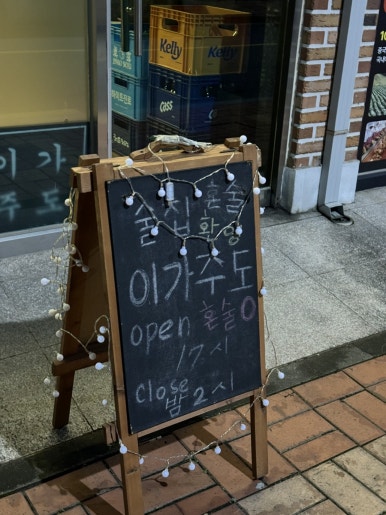 Kelly
Kelly
Cass
이가
주도
술집 혼술
환영
이가주도
open 혼술
17시
close
밤 2시